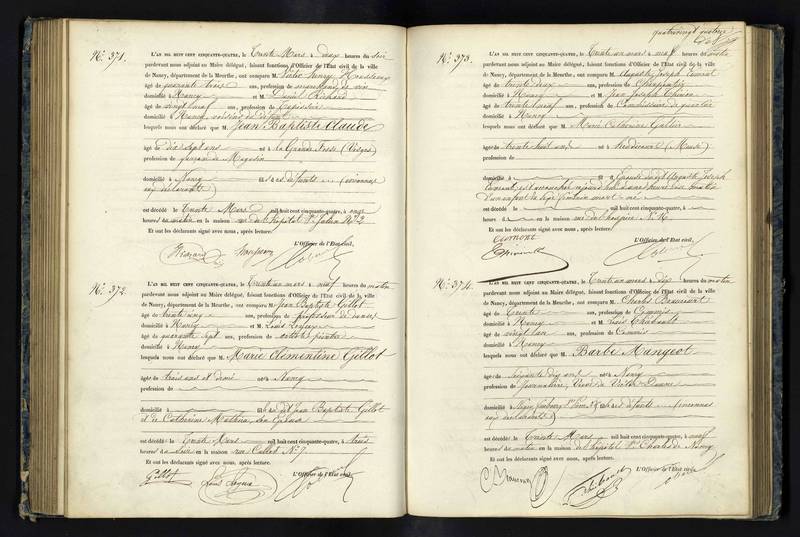 N°. 371.
L'AN MIL HUIT CENT CINQUANTE-QUATRE, le Trente Mars à deux heures du soir
pardevant nous adjoint au Maire délégué, faisant fonctions d'Officier de l'Etat civil de la ville
de Nancy, département de la Meurthe, ont comparu M. Henry
âgé de quarante trois ans, profession de marchand de vin
domicilié à Nancy et M. Daniel Richard
âgé de vingt neuf ans, profession de Tapissier
domicilié à Nancy, voisins du défunt
lesquels nous ont déclaré que M. Jean Baptiste Claude
âgé de Dix sept ans né à La Grande Fosse (Vosges)
profession de garçon de Magasin
domicilié à Nancy fils de défunts (inconnus
aux déclarants)
est décédé le Trente Mars mil huit cent cinquante-quatre, à onze
heures du matin en la maison rue de l'hopital St Julien N° 2
Et ont les déclarants signé avec nous, après lecture.
L'Officier de l'Etat civil,
N°. 372.
L'AN MIL HUIT CENT CINQUANTE-QUATRE, le Trente un mars à neuf heures du matin
pardevant nous adjoint au Maire délégué, faisant fonctions d'Officier de l'Etat civil de la ville
de Nancy, département de la Meurthe, ont comparu M. Jean Baptiste Gillot
âgé de trente cinq ans, profession de professeur de danse
domicilié à Nancy et M. Louis
âgé de quarante sept ans, profession de artiste peintre
domicilié à Nancy
lesquels nous ont déclaré que M. Marie Clémentine Gillot
âgée de trois ans et demi née à Nancy
profession de
domicilié à fille de Jean Baptiste Gillot
et de Catherine
est décédé le Trente Mars mil huit cent cinquante-quatre, à trois
heures du soir en la maison rue Callot N° 7
Et ont les déclarants signé avec nous, après lecture.
L'Officier de l'Etat civil,
Gillot
Louis
quatrevingt quatorze
N°. 373.
L'AN MIL HUIT CENT CINQUANTE-QUATRE, le Trente un mars à neuf heures du matin
pardevant nous adjoint au Maire délégué, faisant fonctions d'Officier de l'Etat civil de la ville
de Nancy, département de la Meurthe, ont comparu M. Auguste Joseph
âgé de trente deux ans, profession de Charpentier
domicilié à Nancy et M. Jean Joseph
âgé de trente neuf ans, profession de Commissaire de quartier
domicilié à Nancy
lesquels nous ont déclaré que M. Marie Catherine
âgée de trente huit ans née à (Meuse)
profession de
domicilié à Epouse dudit Auguste Joseph
est accouchée aujourd'hui à une heure du matin
d'un enfant du sexe féminin mort né
est décédé le mil huit cent cinquante-quatre, à
heures d en la maison rue de l'hospice N° 16
Et ont les déclarants signé avec nous, après lecture.
L'Officier de l'Etat civil,
N°. 374.
L'AN MIL HUIT CENT CINQUANTE-QUATRE, le Trente un mars à dix heures du matin
pardevant nous adjoint au Maire délégué, faisant fonctions d'Officier de l'Etat civil de la ville
de Nancy, département de la Meurthe, ont comparu M. Charles
âgé de trente ans, profession de Commis
domicilié à Nancy et M. Louis
âgé de vingt ans, profession de Commis
domicilié à Nancy
lesquels nous ont déclaré que M. Barbe Mangeot
âgée de soixante dix ans née à Nancy
profession de Journalière, Veuve de Victor
domicilié à Nancy faubourg St Pierre fille de défunts (inconnus
aux déclarants)
est décédé le Trente Mars mil huit cent cinquante-quatre, à neuf
heures du matin en la maison de l'hopital St Charles de Nancy
Et ont les déclarants signé avec nous, après lecture.
L'Officier de l'Etat civil,